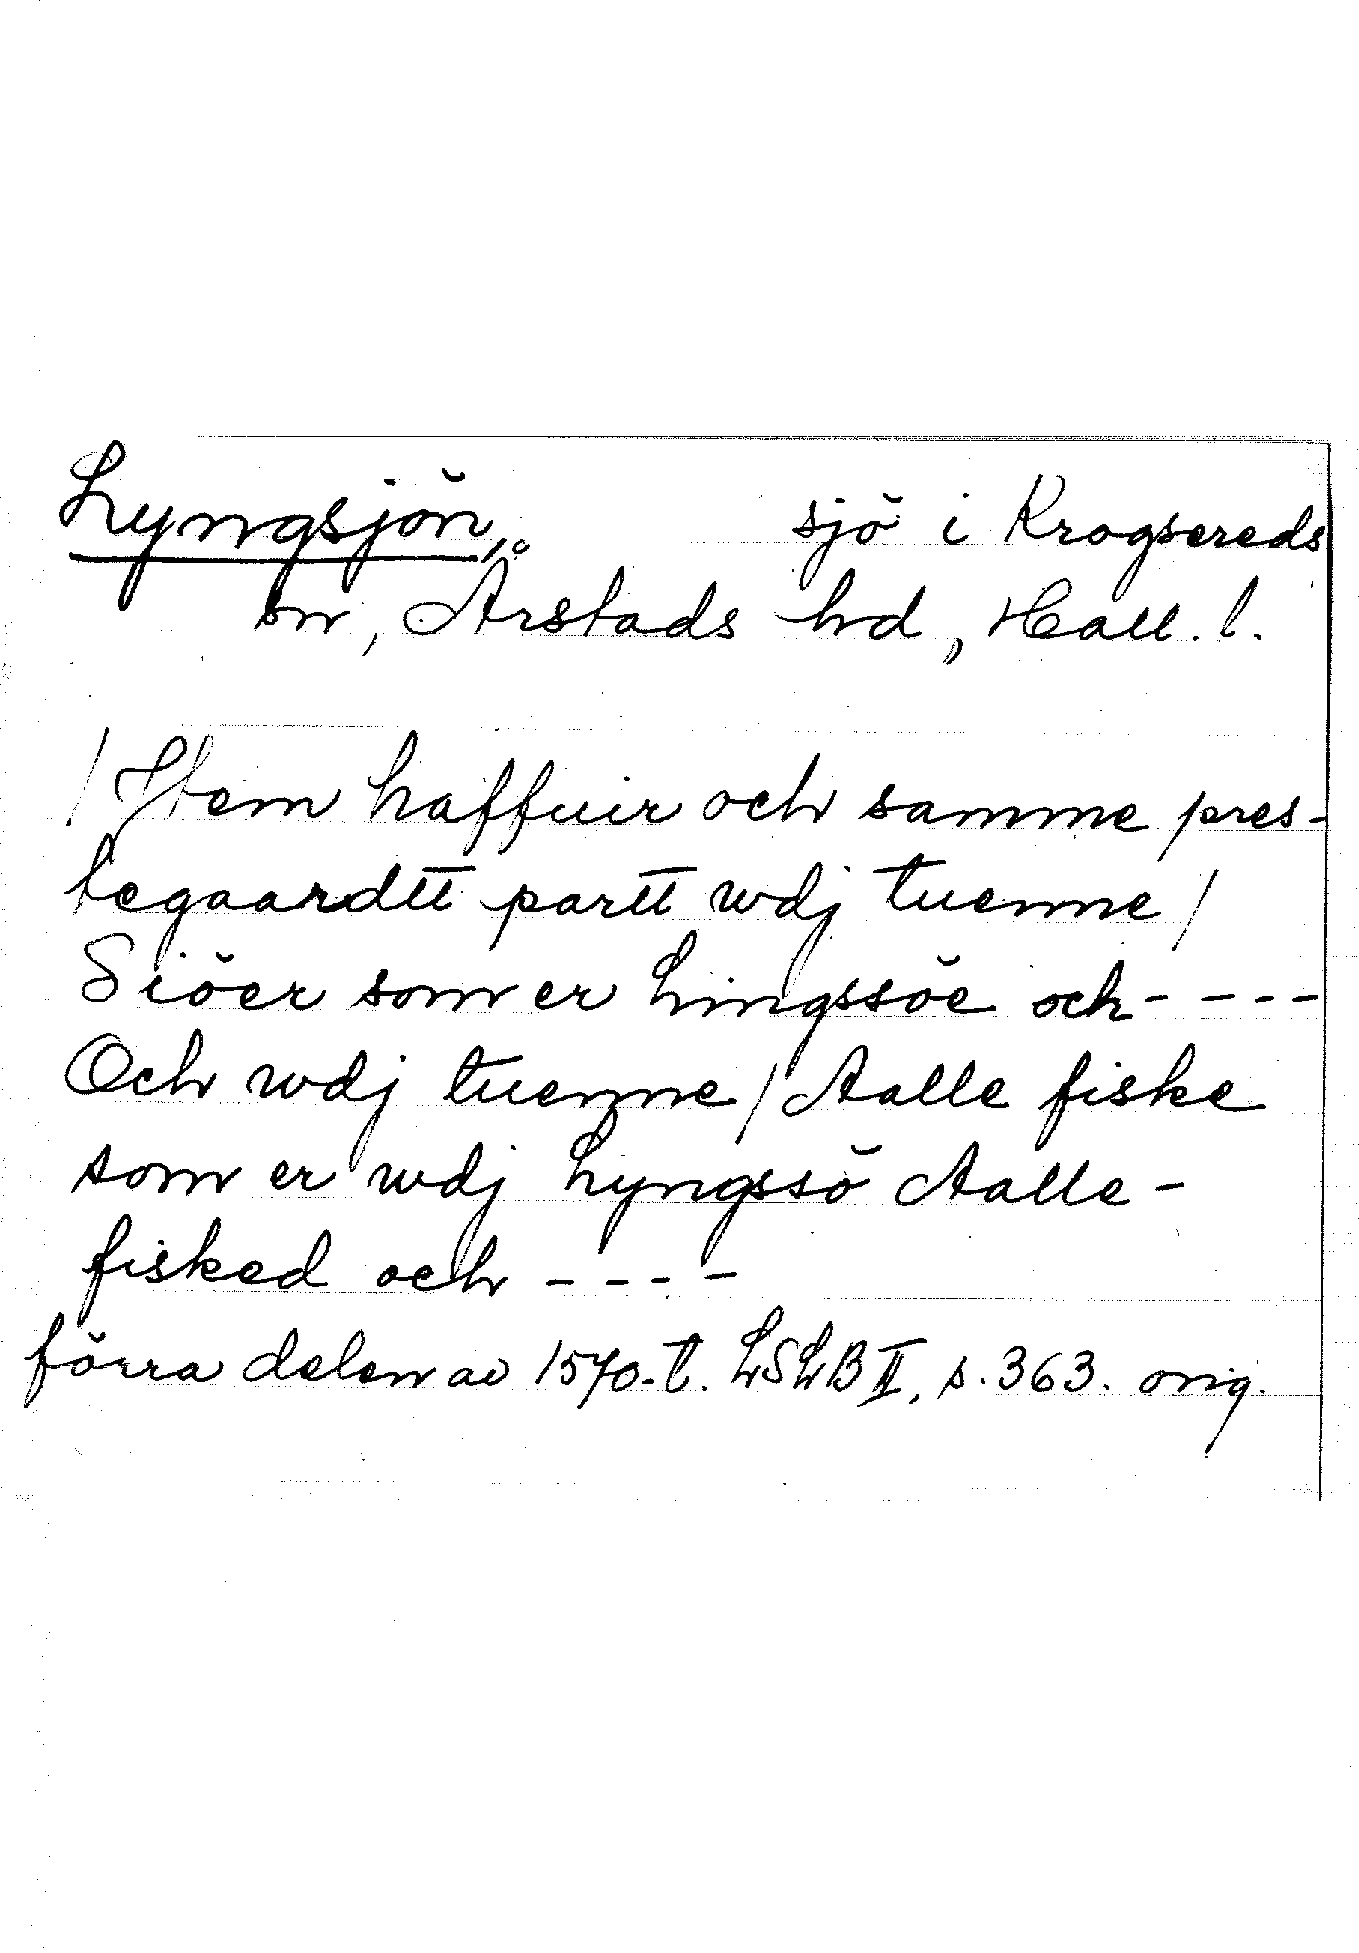 Lyngsjön, sjö i Krogsereds
sn, Årstads hd, Hall. l.
/ Item haffuir och samme pres-
tegaardtt partt wdj tuenne /
Siöer som er Lingssöe och - - - -
Och wdj tuenne / Aalle fiske
som er wdj Lyngssö Aalle-
fisked och - - - -
förra delen av 1570-t. LSLB II, s. 363. orig.